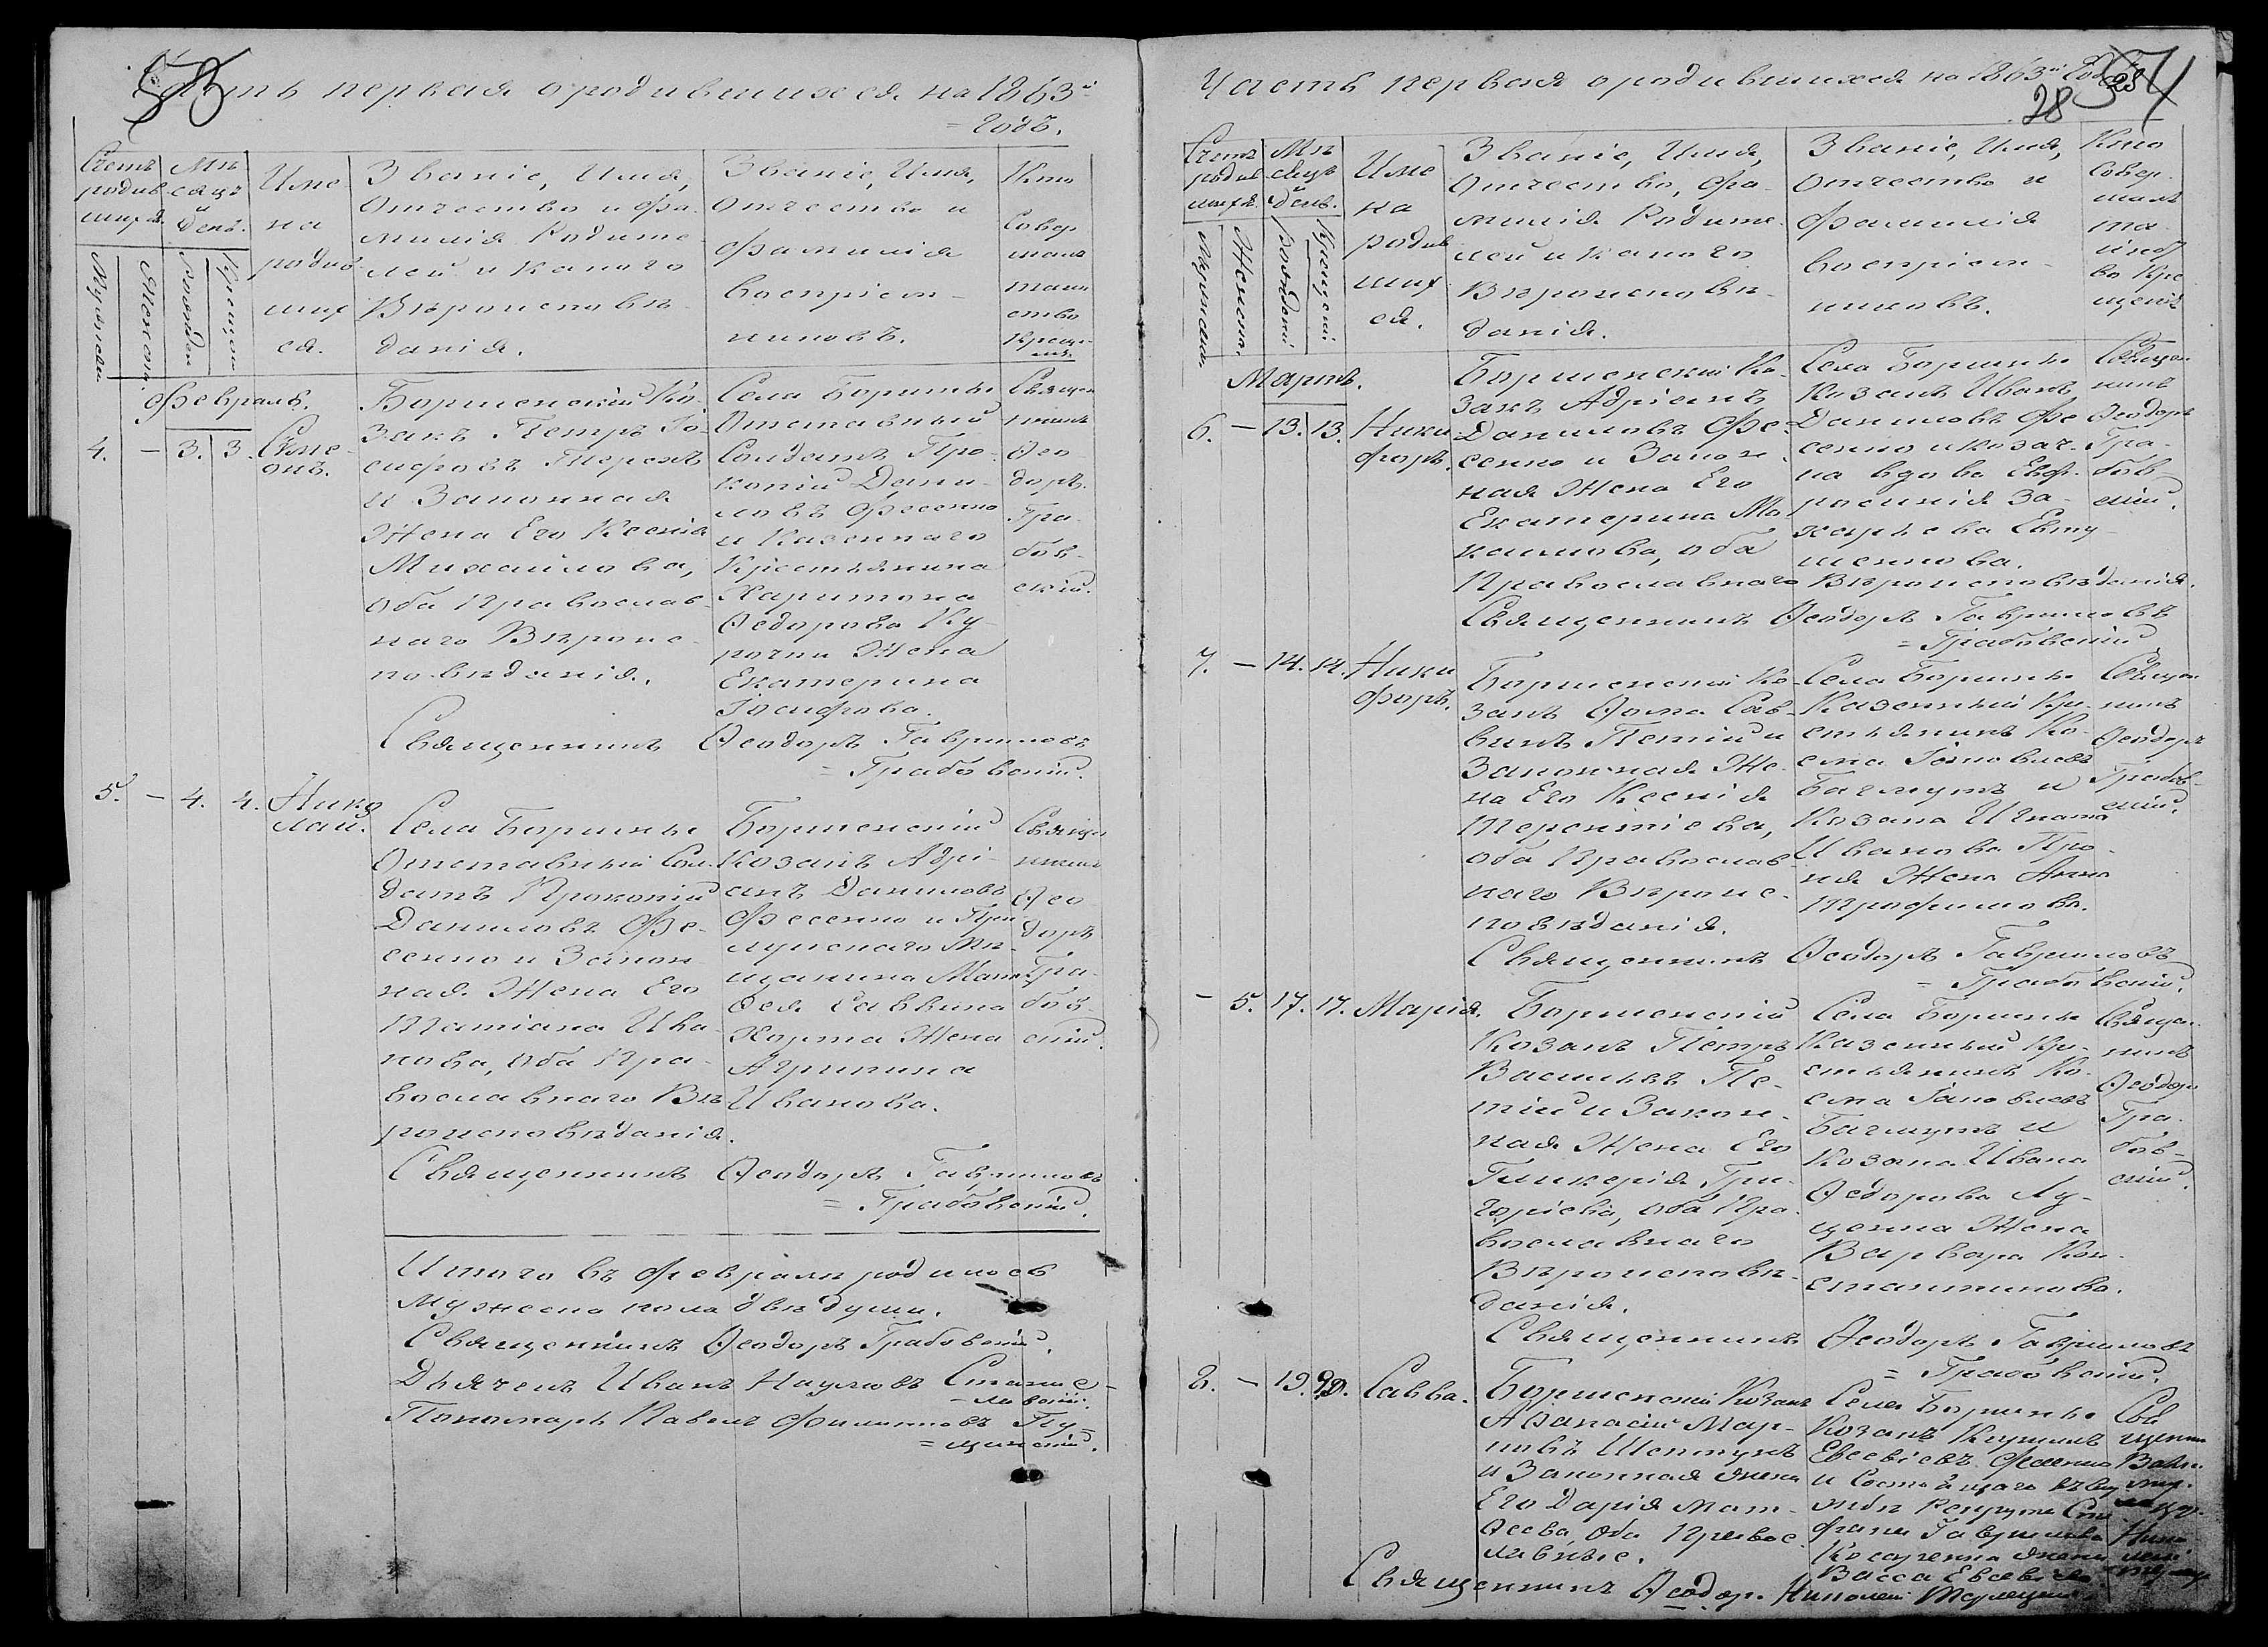 Часть первая о родившихся на 1863й
= Годъ.
Счетъ родив шихся.
Мѣ сяцъ и День.
Мужеска
Женска
Рожден
Крещен
Име на родив ших ся.
Званіе, Имя, Отчество и Фа милія Родите лей и какого Вѣроисповѣ данія.
Званіе, Имя, Отчество и Фамилія воспріем никовъ.
Кто совер шалъ таин ство Креще нія.
Февраль.
4. — 3. 3. Симе онъ.
Борменскій Ко-
закъ Петръ Іо-
сифовъ Терехъ
и Законная
Жена Его Ксенія
Михайлова,
оба Православ-
наго Вѣроис-
повѣданія.
Села Борыньи
Отставный
Солдатъ Про-
копій Дани-
ловъ Фесенко
и Казеннаго
Крестьянина
Харитона
Ѳедорова Ку-
рочки Жена
Екатерина
Іосифова.
Священ
никъ
Ѳео
доръ.
Гра
бов-
скій.
Священникъ Ѳеодоръ Гавриловъ
= Грабовскій.
5. — 4. 4. Нико
лай.
Села Борыньи
Отставный Сол-
датъ Прокопій
Даниловъ Фе-
сенко и Закон
ная Жена Его
Татіана Ива-
нова, оба Пра-
вославнаго Вѣ
роисповѣданія.
Борменскій
Козакъ Адрі-
анъ Даниловъ
Фесенко и При
лукскаго Мѣ-
щанина Мат
ѳея Саввина
Корта Жена
Агрипина
Иванова.
Священ
никъ
Ѳео
доръ
Гра-
бов-
скій.
Священникъ Ѳеодоръ Гавриловъ
= Грабовскій.
Итого въ Февралѣ родилось
Мужеска пола двѣ души.
Священникъ Ѳеодоръ Грабовскій.
Дьячекъ Иванъ Наумовъ Станис-
= лавскій.
Пономарь Павелъ Филиповъ
Часть первая о родившихся на 1863й Годъ
28
Счетъ родив шихся.
Мѣ сяцъ и День.
Мужеска
Женска.
Рожденія
Крещенія
Име на родив ших ся.
Званіе, Имя, Отчество, Фа- милія Родите лей и какого Вѣроисповѣ- данія.
Званіе, Имя, Отчество и Фамилія воспріем- никовъ.
Кто совер- шалъ та- инст во Кре щенія
Мартъ.
6. — 13. 13. Ники
форъ.
Борменскій Ко-
закъ Адріанъ
Даниловъ Фе-
сенко и Закон
ная Жена Его
Екатерина Ма
каимова, оба
Православнаго Вѣроисповѣданія.
Села Борыньи
Козакъ Иванъ
Даниловъ Фе
сенко и козач-
ка вдова Евф-
росинія За-
харьева Евту-
шенкова.
Священ
никъ
Ѳеодоръ
Гра-
бов-
скій.
Священникъ Ѳеодоръ Гавриловъ
= Грабовскій
7. — 14. 14. Ники
форъ.
Борменскій Ко-
закъ Ѳома Сав-
винъ Петій и
Законная Же-
на Его Ксенія
Терентіева,
оба Православ
наго Вѣроис-
повѣданія.
Села Борыньи
Казенный Кре-
стьянинъ Ко-
сма Іаковлевъ
Багмутъ и
Козака Игната
Иванова Про-
ня Жена Анна
Трофимова.
Священ
никъ
Ѳеодоръ
Грабов-
скій.
Священникъ Ѳеодоръ Гавриловъ
= Грабовскій.
— 5. 17. 17. Марія.
Борменскій
Козакъ Петръ
Васильевъ Пе-
тій и Закон-
ная Жена Его
Гликерія Гри-
горіева, оба Пра
вославнаго
Вѣроисповѣ-
данія.
Села Борыньи
Казенный Кре-
стьянинъ Ко-
сма Іаковлевъ
Багмутъ и
Козака Ивана
Ѳедорова Лу-
ценка Жена
Варвара Кон-
стантинова.
Священ
никъ
Ѳеодоръ
Гра-
бов-
скій.
Священникъ Ѳеодоръ Гавриловъ
= Грабовскій.
8. — 19. Савва.
Борменскій Козакъ
Афанасій Мар-
ковъ Шепотухъ
и Законная жена
Его Дарія Мат-
ѳеева, Оба Правос-
лавные.
Села Борыньи
Козакъ Кирилъ
Евсевіевъ Фесенко
Гаврилова
жена
Васса
Священникъ Николай